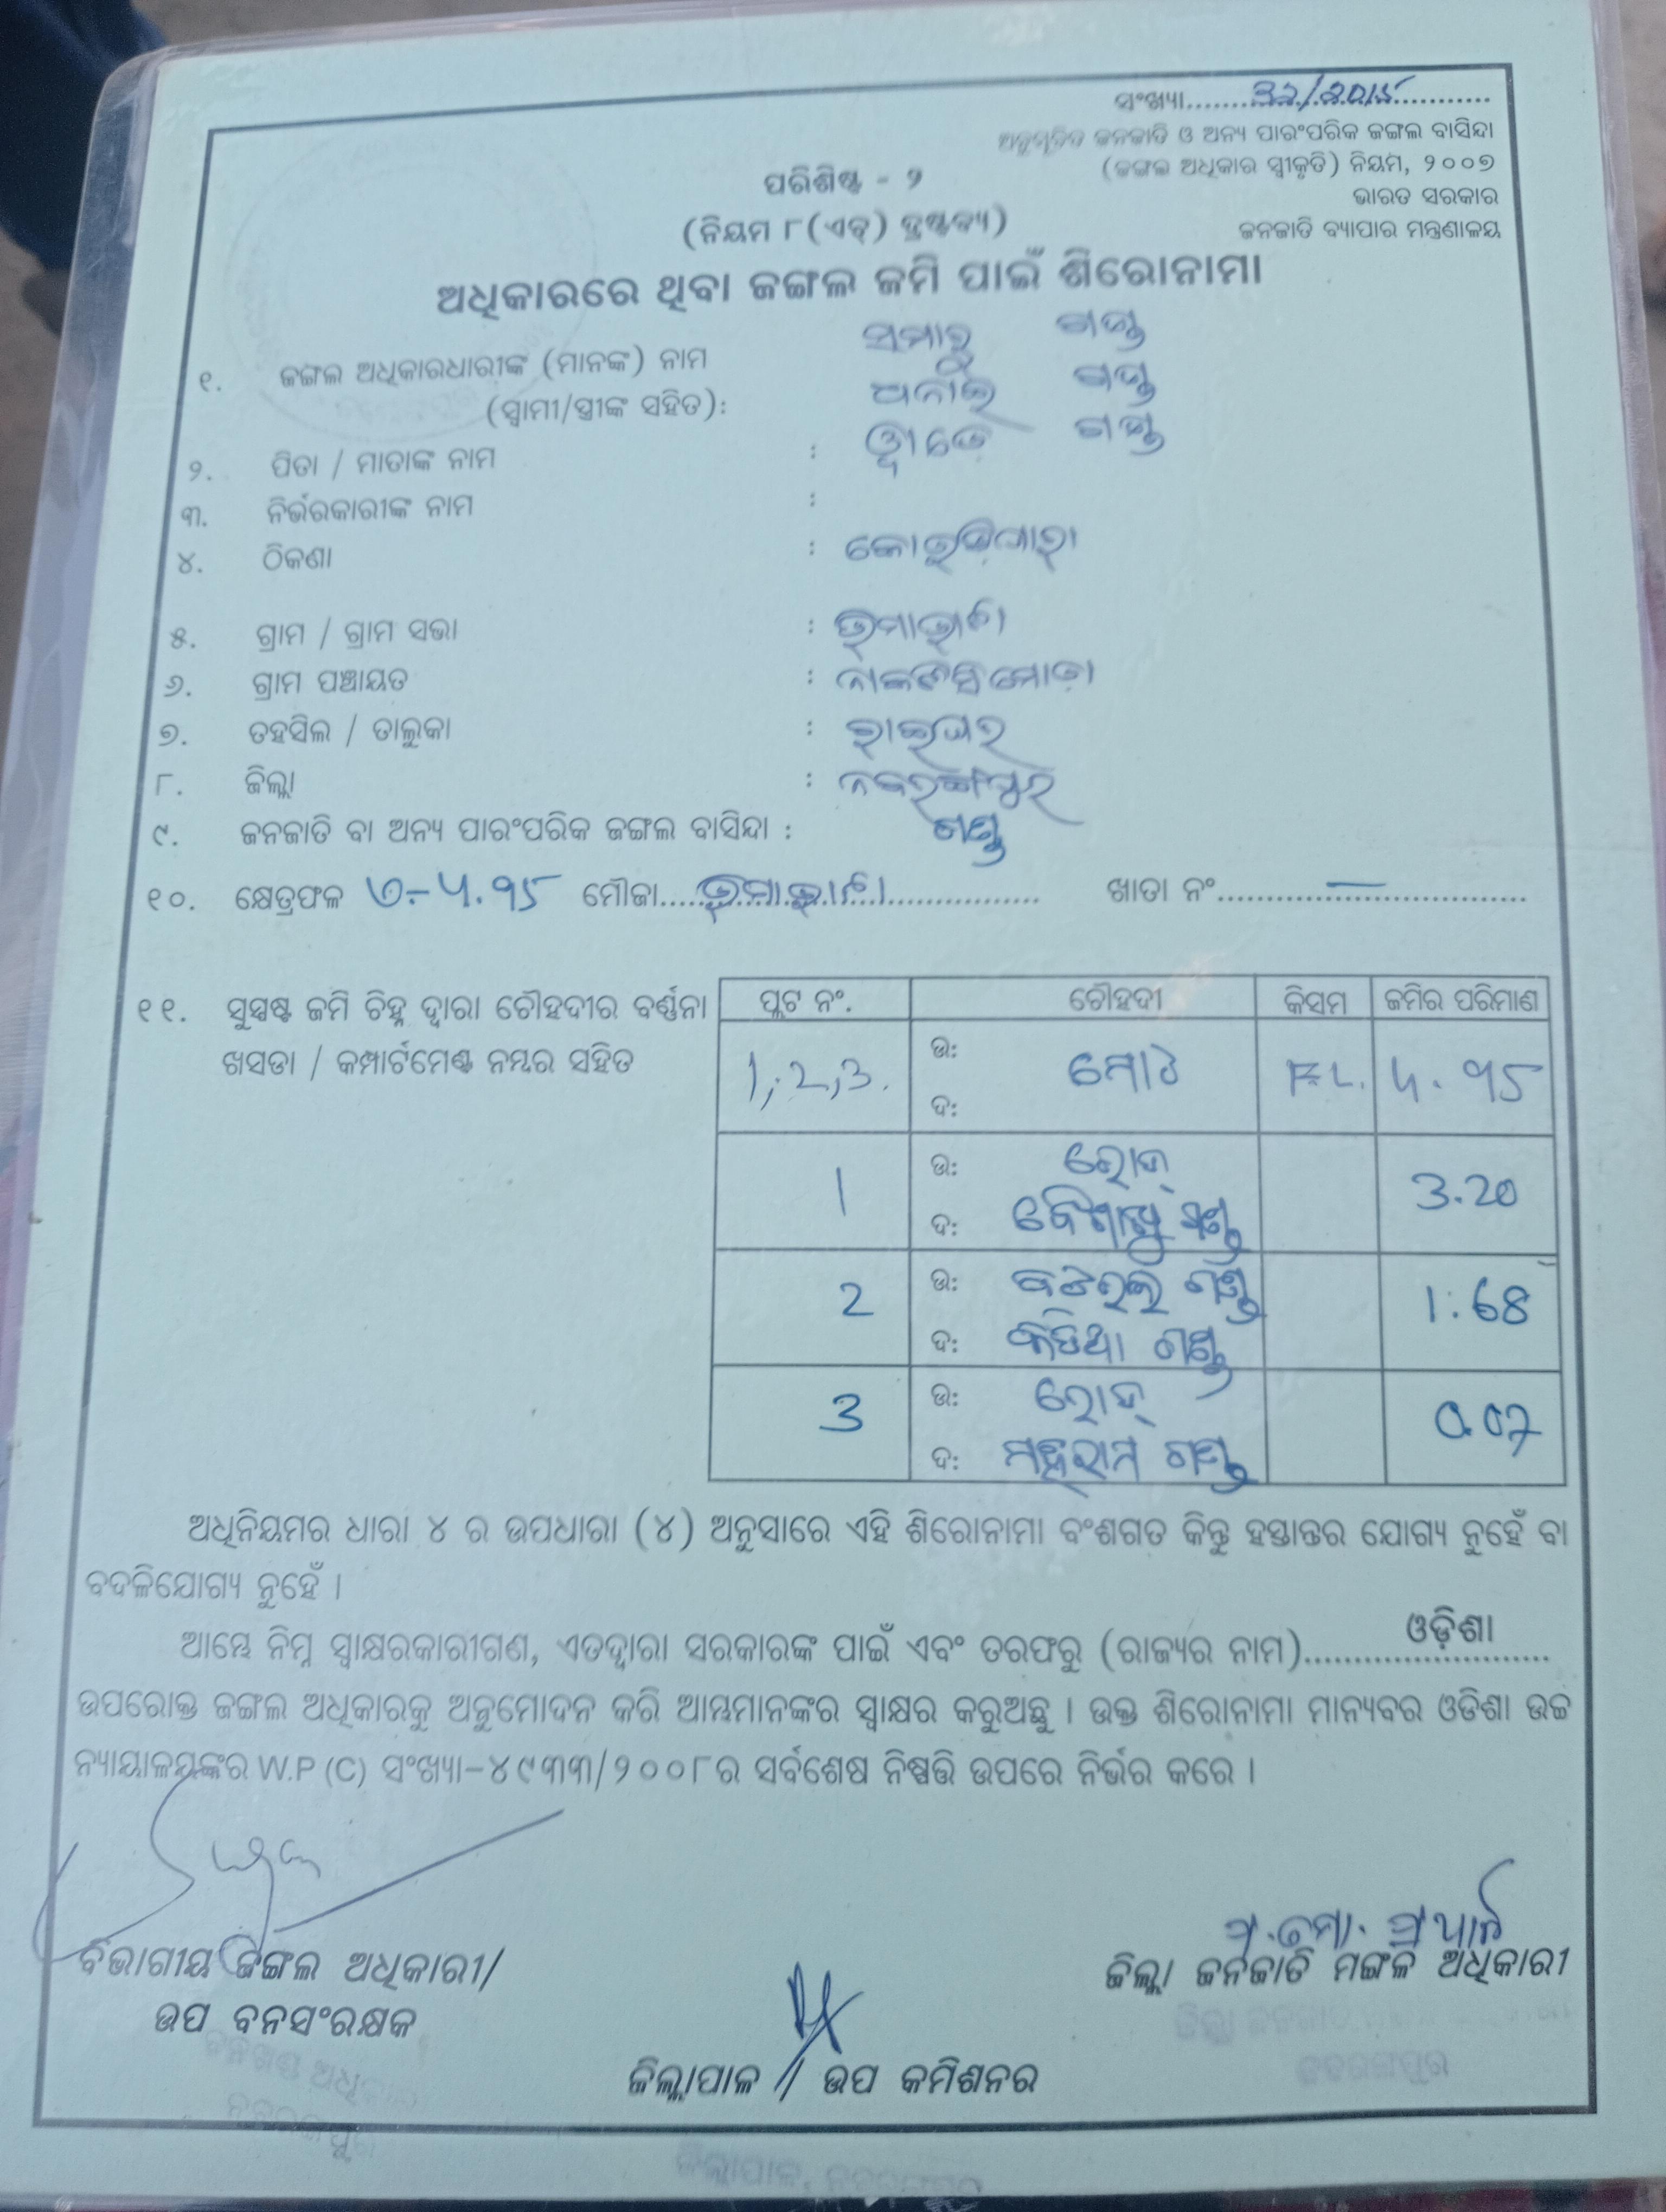 ସଂଖ୍ୟା..............................
ଅନୁସୂଚିତ ଜନଜାତି ଓ ଅନ୍ୟ ପାରଂପରିକ ଜଙ୍ଗଲ ବାସିନ୍ଦା
(ଜଙ୍ଗଲ ଅଧିକାର ସ୍ୱୀକୃତି) ନିୟମ, ୨୦୦୭
ଭାରତ ସରକାର
ଜନଜାତି ବ୍ୟାପାର ମନ୍ତ୍ରଣାଳୟ
ପରିଶିଷ୍ଟ - ୨
(ନିୟମ ୮(ଏଚ୍) ଦ୍ରଷ୍ଟବ୍ୟ)
ଅଧିକାରରେ ଥିବା ଜଙ୍ଗଲ ଜମି ପାଇଁ ଶିରୋନାମା
୧. ଜଙ୍ଗଲ ଅଧିକାରଧାରୀଙ୍କ (ମାନଙ୍କ) ନାମ ସମାରୁ ଗଣ୍ଡ
(ସ୍ୱାମୀ/ସ୍ତ୍ରୀଙ୍କ ସହିତ): ଗଣ୍ଡ
୨. ପିତା / ମାତାଙ୍କ ନାମ : ଗଣ୍ଡ
୩. ନିର୍ଭରକାରୀଙ୍କ ନାମ :
୪. ଠିକଣା :
୫. ଗ୍ରାମ / ଗ୍ରାମ ସଭା :
୬. ଗ୍ରାମ ପଞ୍ଚାୟତ :
୭. ତହସିଲ / ତାଲୁକା : ରାଇଘର
୮. ଜିଲ୍ଲା : ନବରଙ୍ଗପୁର
୯. ଜନଜାତି ବା ଅନ୍ୟ ପାରଂପରିକ ଜଙ୍ଗଲ ବାସିନ୍ଦା : ଗଣ୍ଡ
୧୦. କ୍ଷେତ୍ରଫଳ ୫.୯୫ ମୌଜା.............................. ଖାତା ନଂ.............................. —
୧୧. ସୁସ୍ପଷ୍ଟ ଜମି ଚିହ୍ନ ଦ୍ୱାରା ଚୌହଦୀର ବର୍ଣ୍ଣନା
ଖସଡା / କମ୍ପାର୍ଟମେଣ୍ଟ ନମ୍ବର ସହିତ
ପ୍ଲଟ ନଂ. ଚୌହଦୀ କିସମ ଜମିର ପରିମାଣ
1,2,3. ଉ: ଦ: ମୋଠ F.L. ୫.୯୫
1 ଉ: ରୋଡ୍ 3.20
ଦ: ବୈଶାଖୁ ଗଣ୍ଡ
2 ଉ: ଗଣ୍ଡ 1.68
ଦ: ଗଣ୍ଡ
3 ଉ: ରୋଡ୍ 0.07
ଦ: ଗଣ୍ଡ
ଅଧିନିୟମର ଧାରା ୪ ର ଉପଧାରା (୪) ଅନୁସାରେ ଏହି ଶିରୋନାମା ବଂଶଗତ କିନ୍ତୁ ହସ୍ତାନ୍ତର ଯୋଗ୍ୟ ନୁହେଁ ବା
ବଦଳିଯୋଗ୍ୟ ନୁହେଁ ।
ଆମ୍ଭେ ନିମ୍ନ ସ୍ୱାକ୍ଷରକାରୀଗଣ, ଏତଦ୍ୱାରା ସରକାରଙ୍କ ପାଇଁ ଏବଂ ତରଫରୁ (ରାଜ୍ୟର ନାମ)..........ଓଡ଼ିଶା..........
ଉପରୋକ୍ତ ଜଙ୍ଗଲ ଅଧିକାରକୁ ଅନୁମୋଦନ କରି ଆମ୍ଭମାନଙ୍କର ସ୍ୱାକ୍ଷର କରୁଅଛୁ । ଉକ୍ତ ଶିରୋନାମା ମାନ୍ୟବର ଓଡିଶା ଉଚ୍ଚ
ନ୍ୟାୟାଳୟଙ୍କର W.P (C) ସଂଖ୍ୟା-୪୯୩୩/୨୦୦୮ର ସର୍ବଶେଷ ନିଷ୍ପତ୍ତି ଉପରେ ନିର୍ଭର କରେ ।
ବିଭାଗୀୟ ଜଙ୍ଗଲ ଅଧିକାରୀ/
ଉପ ବନସଂରକ୍ଷକ
ଜିଲ୍ଲା ଜନଜାତି ମଙ୍ଗଳ ଅଧିକାରୀ
ଜିଲ୍ଲାପାଳ // ଉପ କମିଶନର